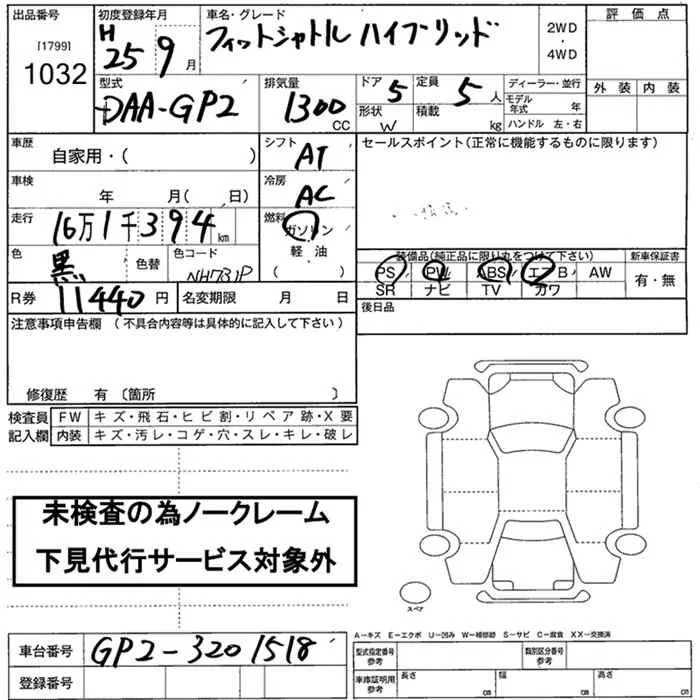 出品番号 初度登録年月 車名・グレード 評価点
[1799] H 25 9月 フィットシャトル ハイブリッド 2WD・4WD
1032
型式 排気量 ドア 定員 ディーラー・並行 外装 内装
DAA-GP2 1300 CC 5 5人 モデル年式 年
形状 W 積載 kg ハンドル 左・右
車歴 シフト セールスポイント(正常に機能するものに限ります)
自家用・( ) AT
車検 冷房
年 月( 日) AC
走行 燃料
16万1千394km ガソリン
色 色替 色コード 軽・油 装備品(純正品に限り丸をつけて下さい) 新車保証書
黒 NH731P ( ) PS PW ABS エアB AW 有・無
SR ナビ TV カワ
R券 11440円 名変期限 月 日 後日品
注意事項申告欄 (不具合内容等は具体的に記入して下さい)
修復歴 有 〔箇所 〕
検査員 FW キズ・飛石・ヒビ割・リペア跡・X要
記入欄 内装 キズ・汚レ・コゲ・穴・スレ・キレ・破レ
未検査の為ノークレーム
下見代行サービス対象外
スペア
A-キズ E-エクボ U-凹み W-補修跡 S-サビ C-腐食 XX-交換済
車台番号 GP2-3201518 型式指定番号 参考 類別区分番号 参考
登録番号 車庫証明用 参考 長さ cm 幅 cm 高さ cm